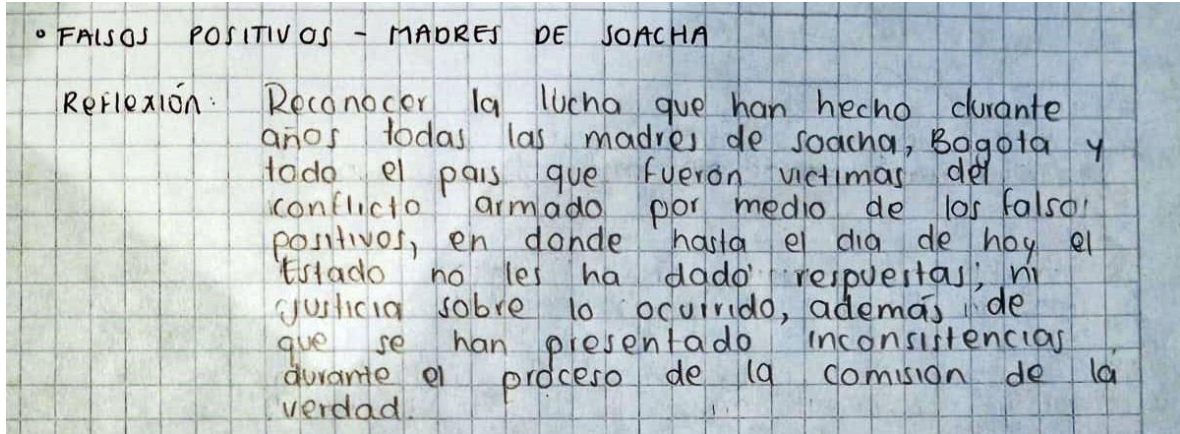 • FALSOS POSITIVOS - MADRES DE SOACHA
Reflexión: Reconocer la lucha que han hecho durante
años todas las madres de soacha, Bogota y
todo el pais que fueron victimas del
conflicto armado por medio de los falsos
positivos, en donde hasta el dia de hoy el
Estado no les ha dado respuestas, ni
justicia sobre lo ocurrido, además de
que se han presentado inconsistencias
durante el proceso de la comision de la
verdad.